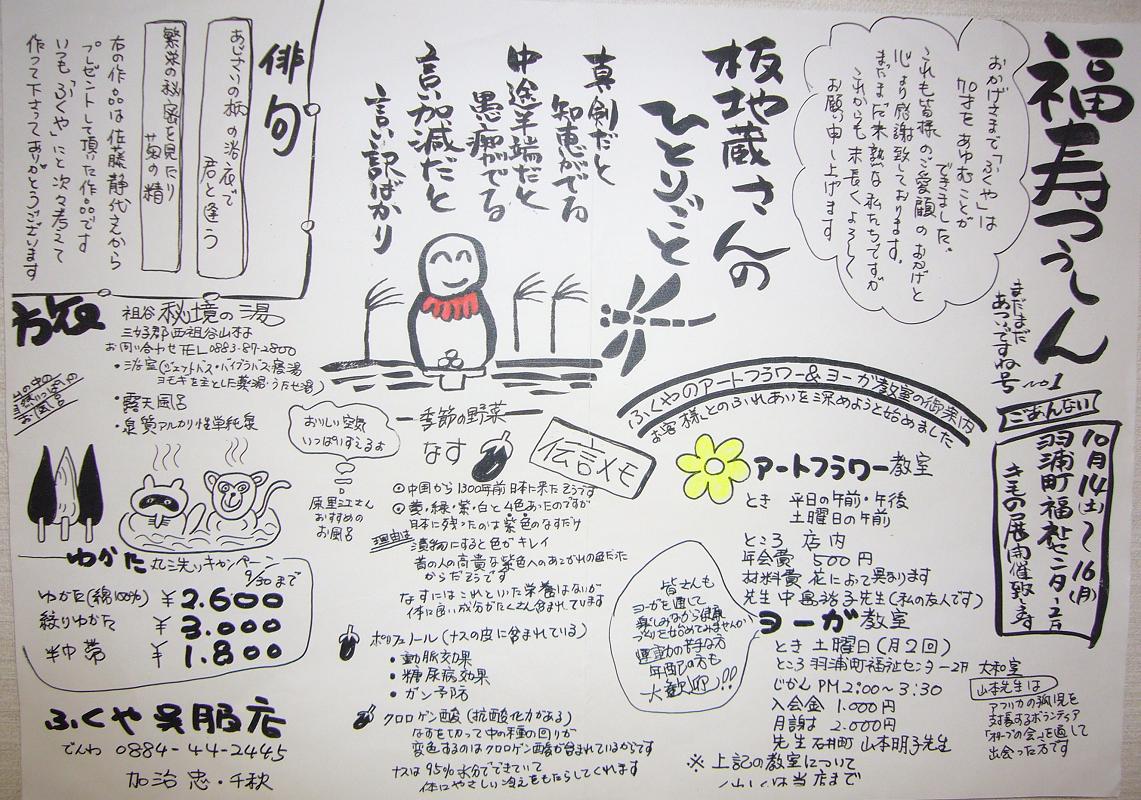 福寿つうしん
まだまだ
あついですね号
no1
おかげさまで「ふくや」は
70才をあゆむことが
できました。
これも皆様のご愛顧のおかげと
心より感謝致しております。
まだまだ未熟な私たちですが
これからも末長くよろしく
お願い申し上げます
板地蔵さんの
ひとりごと
真剣だと
知恵がでる
中途半端だと
愚痴がでる
言い加減だと
言い訳ばかり
俳句
あじさいの柄の浴衣で
君と逢う
繁栄の秘密を見たり
菊の精
右の作品は佐藤静代さんから
プレゼントして頂いた作品です
いつも「ふくや」にと次々考えて
作って下さってありがとうございます
ごあんない
10月14(土)〜16(月)
羽浦町福祉センター2F
きもの展開催致します
祖谷 秘境の湯
三好郡西祖谷山村
お問い合わせTEL 0883-87-2800
・浴室(ジェットバス・バイブラバス・寝湯
ヨモギを主とした薬湯・うたせ湯)
・露天風呂
・泉質アルカリ性単純泉
おいしい空気
いっぱいすえるよ
原里江さん
おすすめの
お風呂
ゆかた丸洗いキャンペーン
9/30まで
ゆかた(綿100%) ¥2.600
絞りゆかた ¥3.000
半巾帯 ¥1.800
ふくや呉服店
でんわ 0884-44-2445
加治 忠・千秋
季節の野菜
なす
伝言メモ
⊙中国から1300年前日本に来たそうです
⊙黄・緑・紫・白と4色あったのですが
日本に残ったのは紫色のなすだけ
理由は
漬物にすると色がキレイ
昔の人の高貴な紫色へのあこがれの色だった
からだそうです
なすにはこれといった栄養はないが
体に良い成分がたくさん含まれています
ポリフェノール(ナスの皮に含まれている)
・動脈効果
・糖尿病効果
・ガン予防
クロロゲン酸(抗酸化力がある)
なすを切って中の種の回りが
変色するのはクロロゲン酸が含まれているからです
ナスは95%水分でできていて
体にやさしい冷えをもたらしてくれます
ふくやのアートフラワー&ヨーガ教室の御案内
お客様とのふれあいを深めようと始めました
アートフラワー教室
とき 平日の午前・午後
土曜日の午前
ところ 店内
年会費 500円
材料費 花によって異なります
先生 中島裕子先生(私の友人です)
皆さんも
ヨーガを通じて
楽しみながら健康
づくりを始めてみませんか
運動の苦手な方
年配の方も
大歓迎!!
ヨーガ教室
とき 土曜日(月2回)
ところ 羽浦町福祉センター2F 大和室
じかん PM2:00〜3:30
入会金 1.000円
月謝 2.000円
先生 石井町 山本明子先生
※上記の教室について
山本先生は
アフリカの孤児を
支援するボランティア
「オリーブの会」を通して
出会った方です